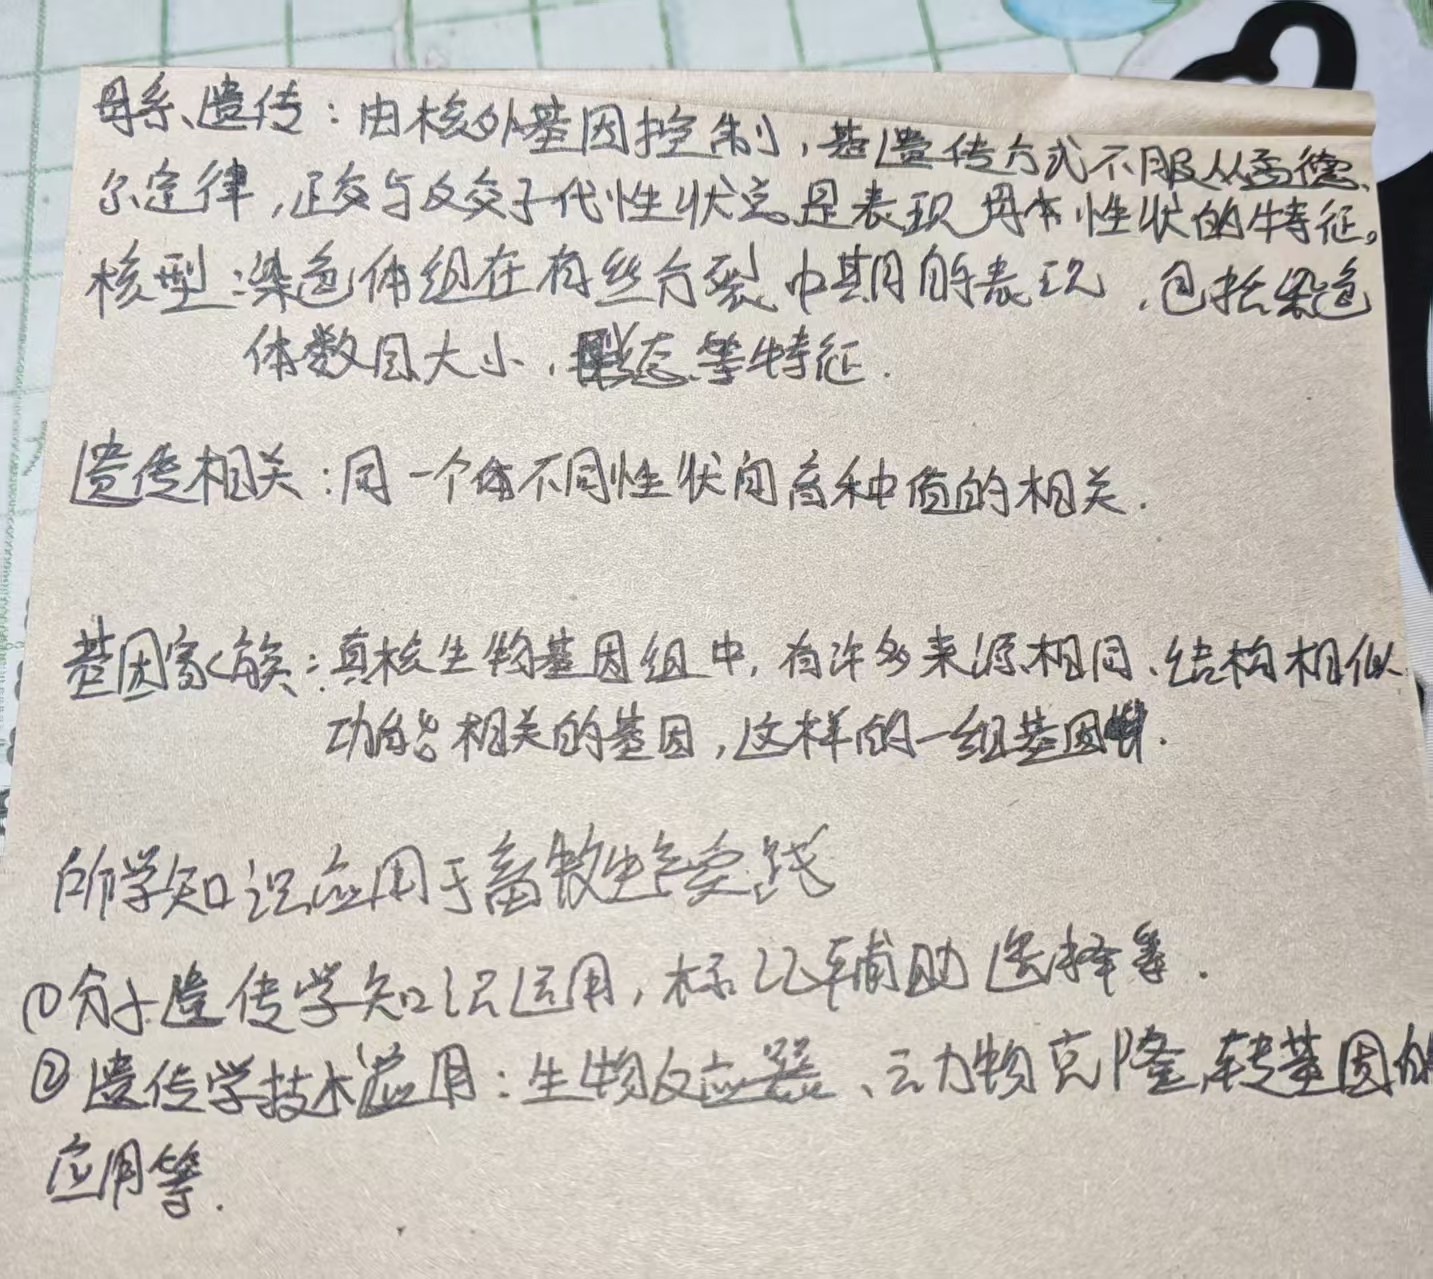 母系遗传：由核外基因控制，其遗传方式不服从孟德
尔定律，正交与反交子代性状总是表现母本性状的特征。
核型：染色体组在有丝分裂中期的表现，包括染色
体数目大小，形态等特征.
遗传相关：同一个体不同性状间育种值的相关.
基因家族：真核生物基因组中，有许多来源相同、结构相似
功能相关的基因，这样的一组基因.
所学知识应用于畜牧生产实践
①分子遗传学知识运用，标记辅助选择等.
②遗传学技术应用：生物反应器、动物克隆，转基因的
应用等.